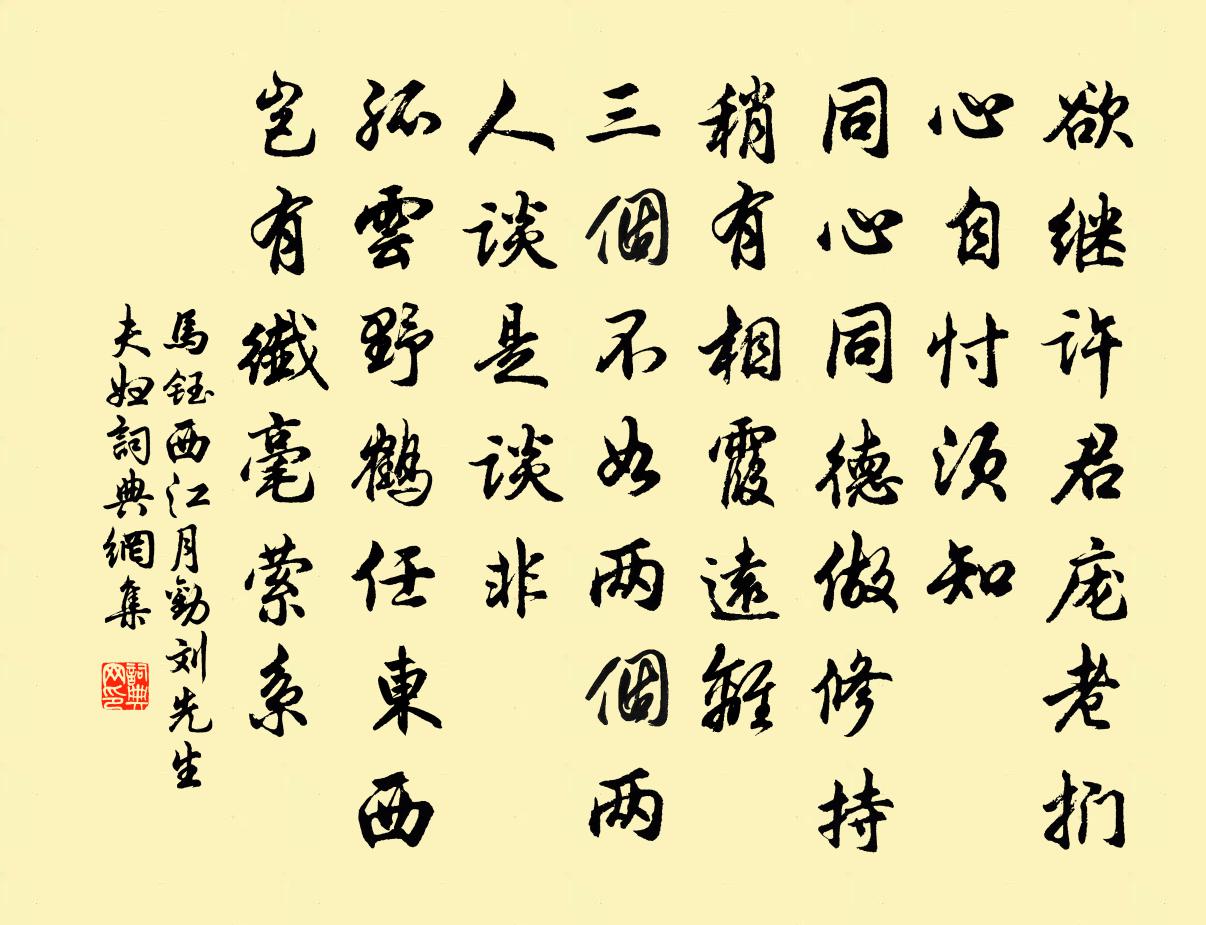 欲继许君庞老扪
心自忖须知
同心同德做修持
稍有相霞遠離
三個不如两個两
人谈是谈非
孤雲野鹤任東西
岂有纖毫萦系
馬钰西江月勸刘先生
夫妇詞典網集
詞典网印